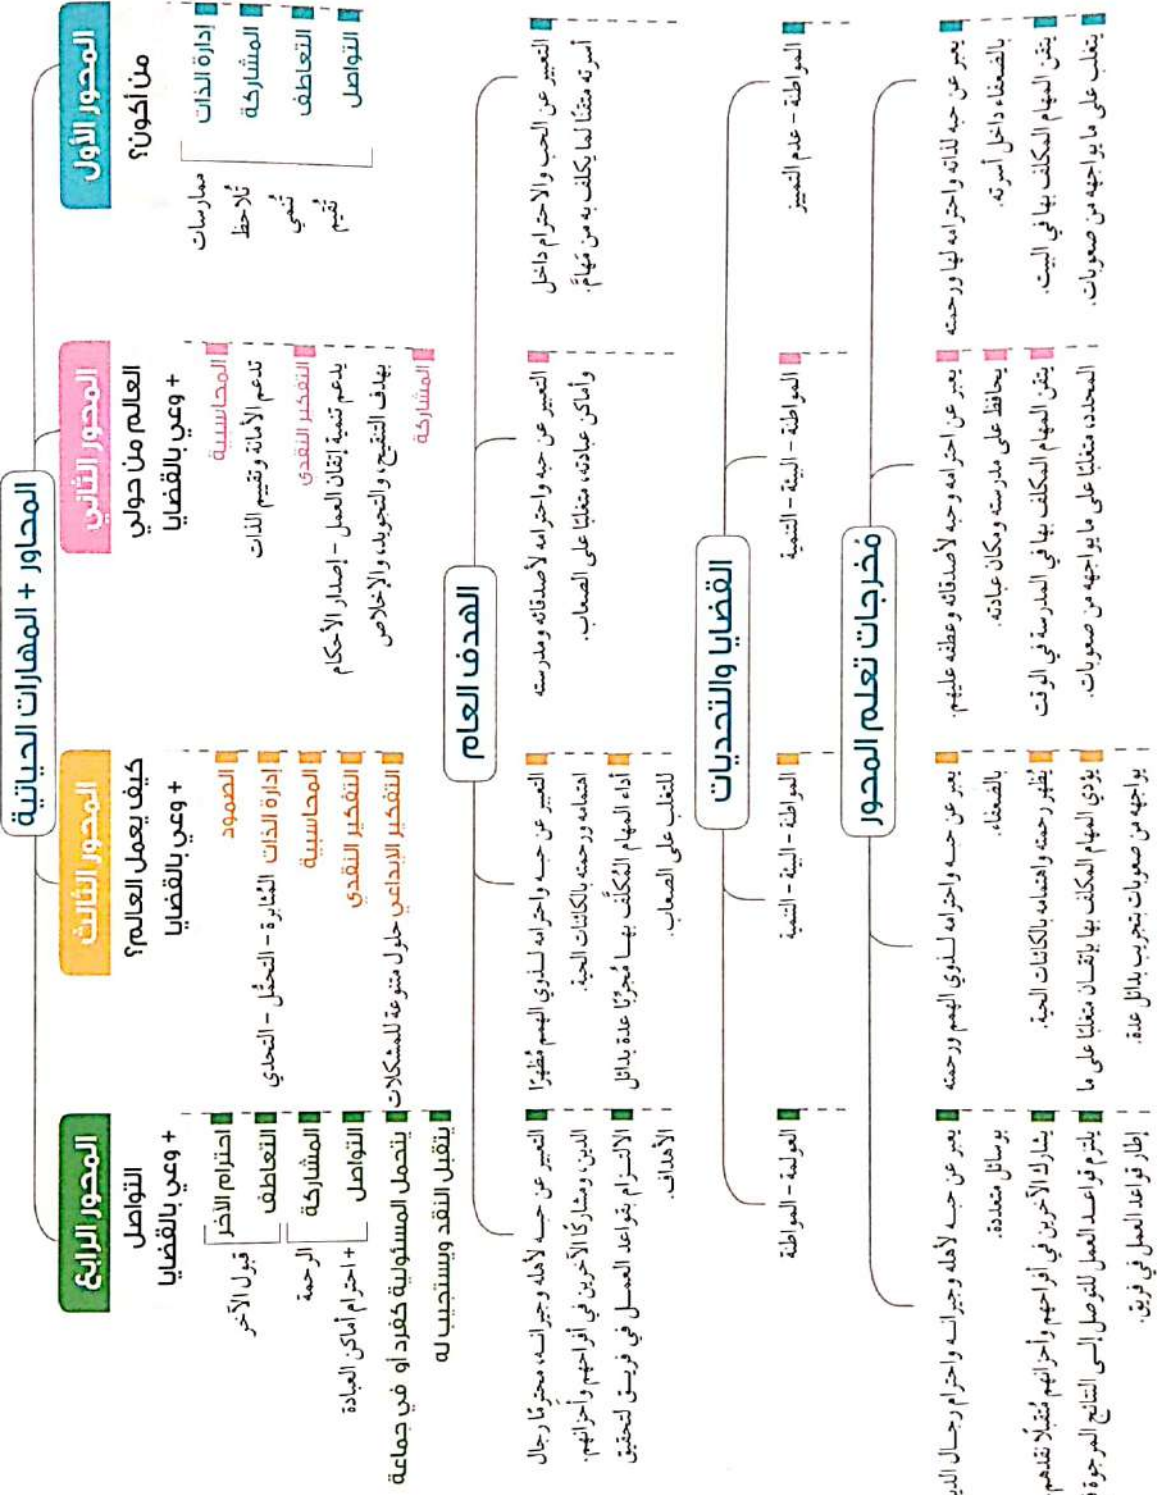 المحاور + المهارات الحياتية
المحور الأول
من أكون؟
إدارة الذات
المشاركة
التعاطف
التواصل
ممارسات
تُلاحظ
تُنمي
تُقيم
المحور الثاني
العالم من حولي
+ وعي بالقضايا
المحاسبية
تدعم الأمانة وتقييم الذات
التفكير النقدي
يدعم تنمية إتقان العمل - إصدار الأحكام
بهدف التنقيح، والتجويد، والإخلاص
المشاركة
المحور الثالث
كيف يعمل العالم؟
+ وعي بالقضايا
الصمود
إدارة الذات المُثابرة - التحمُّل - التحدي
المحاسبية
التفكير النقدي
التفكير الإبداعي حلول متنوعة للمشكلات
المحور الرابع
التواصل
+ وعي بالقضايا
احترام الآخر
التعاطف
قبول الآخر
المشاركة
التواصل
الرحمة
+ احترام أماكن العبادة
يتحمل المسئولية كفرد أو في جماعة
يتقبل النقد ويستجيب له
الهدف العام
التعبير عن الحب والاحترام داخل
أسرته متقنًا لما يكلف به من مَهامَّ.
التعبير عن حبه واحترامه لأصدقائه ومدرسته
وأماكن عبادته، متغلبًا على الصعاب.
التعبير عن حبه واحترامه لذوي الهمم مُظهِرًا
اهتمامه ورحمته بالكائنات الحية.
أداء المهام المُكلَّف بها مُجرِّبًا عدة بدائل
للتغلب على الصعاب.
التعبير عن حبه لأهله وجيرانه، محترمًا رجال
الدين، ومشاركًا الآخرين في أفراحهم وأحزانهم.
الالتزام بقواعد العمل في فريق لتحقيق
الأهداف.
القضايا والتحديات
المواطنة - عدم التمييز
المواطنة - البيئة - التنمية
المواطنة - البيئة - التنمية
العولمة - المواطنة
مُخرجات تعلم المحور
يعبر عن حبه لذاته واحترامه لها ورحمته
بالضعفاء داخل أسرته.
يتقن المهام المكلف بها في البيت.
يتغلب على ما يواجهه من صعوبات.
يعبر عن احترامه وحبه لأصدقائه وعطفه عليهم.
يحافظ على مدرسته ومكان عبادته.
يتقن المهام المكلف بها في المدرسة في الوقت
المحدد متغلبًا على ما يواجهه من صعوبات.
يعبر عن حبه واحترامه لذوي الهمم ورحمته
بالضعفاء.
يُظهر رحمته واهتمامه بالكائنات الحية.
يؤدي المهام المكلف بها بإتقان متغلبًا على ما
يواجهه من صعوبات بتجريب بدائل عدة.
يعبر عن حبه لأهله وجيرانه واحترام رجال
بوسائل متعددة.
يشارك الآخرين في أفراحهم وأحزانهم مُتقبلًا نقدهم.
يلتزم قواعد العمل للتوصل إلى النتائج المرجوة
إطار قواعد العمل في فريق.